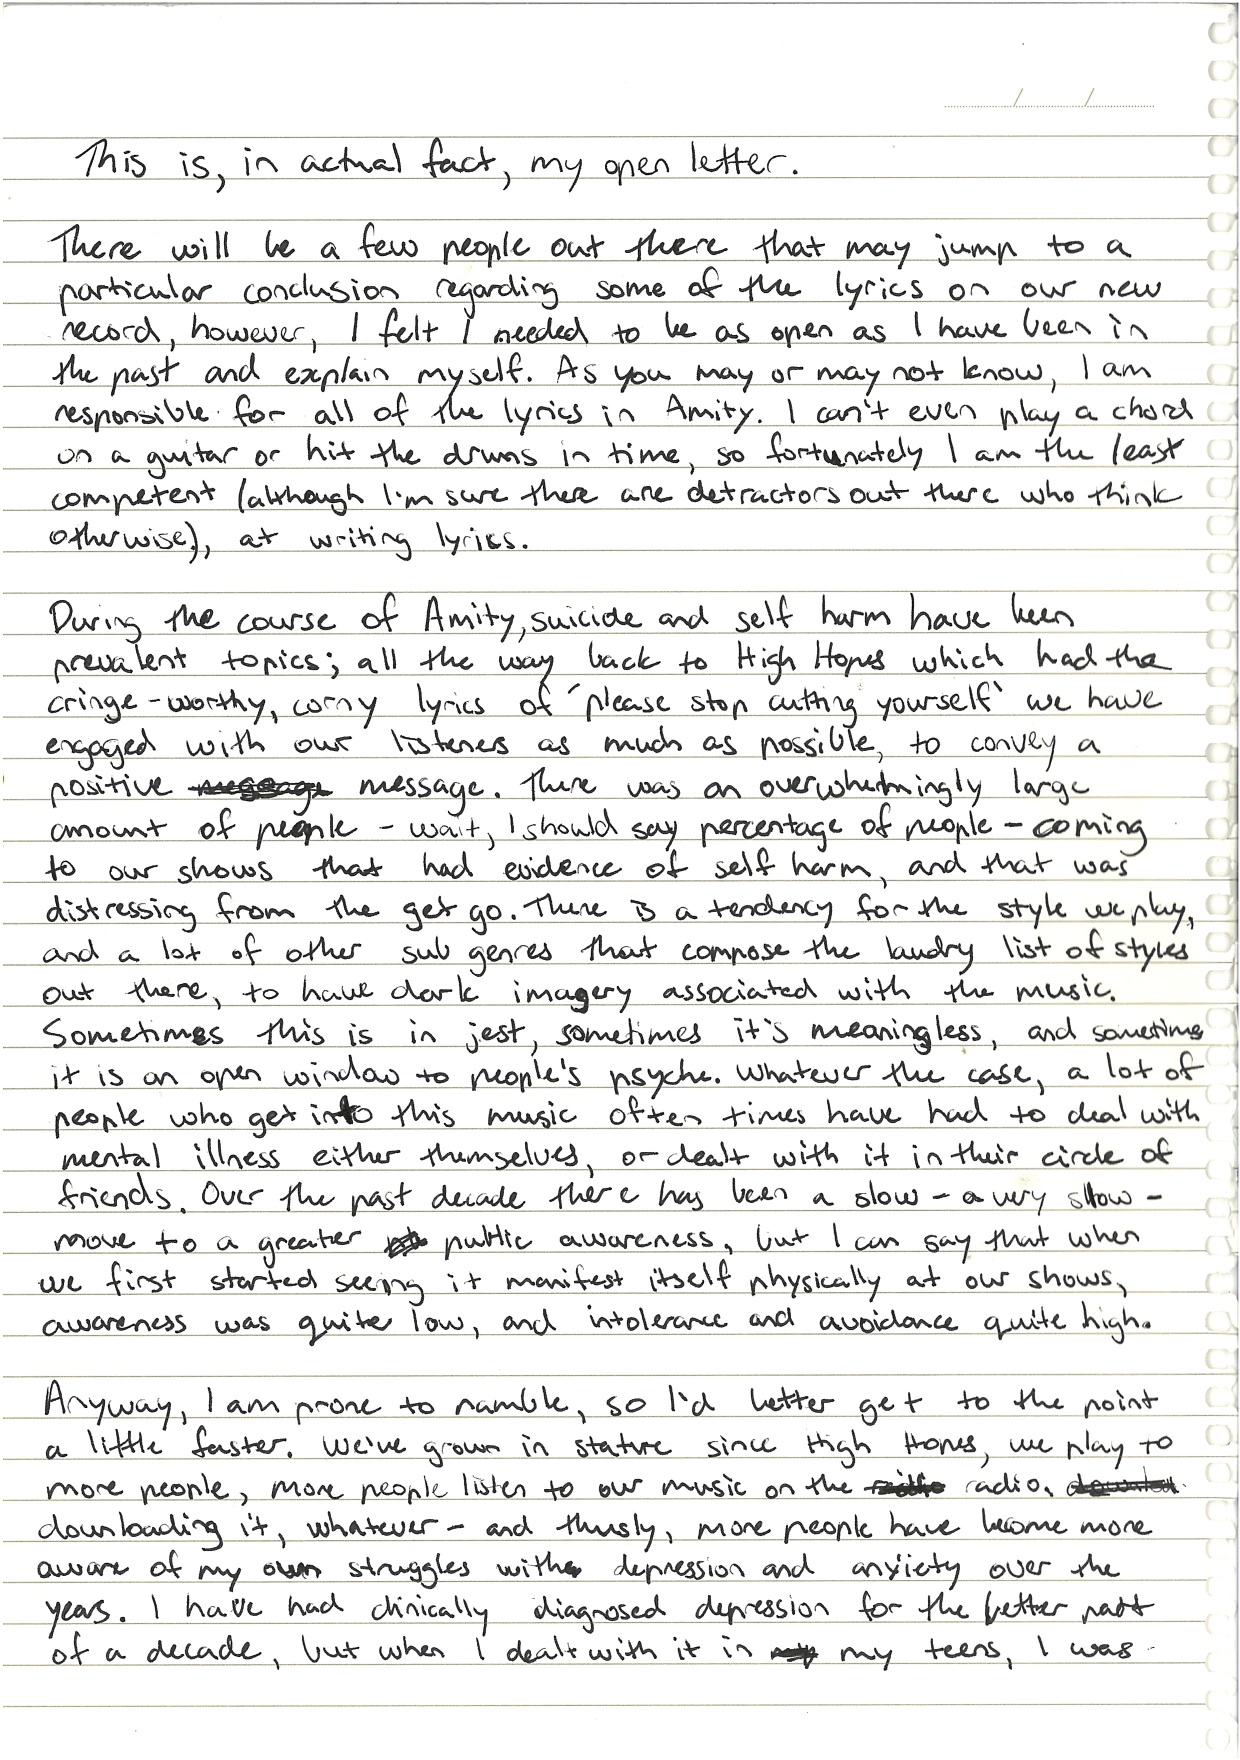 This is, in actual fact, my open letter.
There will be a few people out there that may jump to a
particular conclusion regarding some of the lyrics on our new
record, however, I felt I needed to be as open as I have been in
the past and explain myself. As you may or may not know, I am
responsible for all of the lyrics in Amity. I can't even play a chord
on a guitar or hit the drums in time, so fortunately I am the least
competent (although I'm sure there are detractors out there who think
otherwise), at writing lyrics.
During the course of Amity, suicide and self harm have been
prevalent topics; all the way back to High Hopes which had the
cringe-worthy, corny lyrics of 'please stop cutting yourself' we have
engaged with our listeners as much as possible, to convey a
positive message. There was an overwhelmingly large
amount of people - wait, I should say percentage of people - coming
to our shows that had evidence of self harm, and that was
distressing from the get go. There is a tendency for the style we play,
and a lot of other sub genres that compose the laundry list of styles
out there, to have dark imagery associated with the music.
Sometimes this is in jest, sometimes it's meaningless, and sometimes
it is an open window to people's psyche. Whatever the case, a lot of
people who get into this music often times have had to deal with
mental illness either themselves, or dealt with it in their circle of
friends. Over the past decade there has been a slow - a very slow -
move to a greater public awareness, but I can say that when
we first started seeing it manifest itself physically at our shows,
awareness was quite low, and intolerance and avoidance quite high.
Anyway, I am prone to ramble, so I'd better get to the point
a little faster. We've grown in stature since High Hopes, we play to
more people, more people listen to our music on the radio,
downloading it, whatever - and thusly, more people have become more
aware of my own struggles with depression and anxiety over the
years. I have had clinically diagnosed depression for the better part
of a decade, but when I dealt with it in my teens, I was